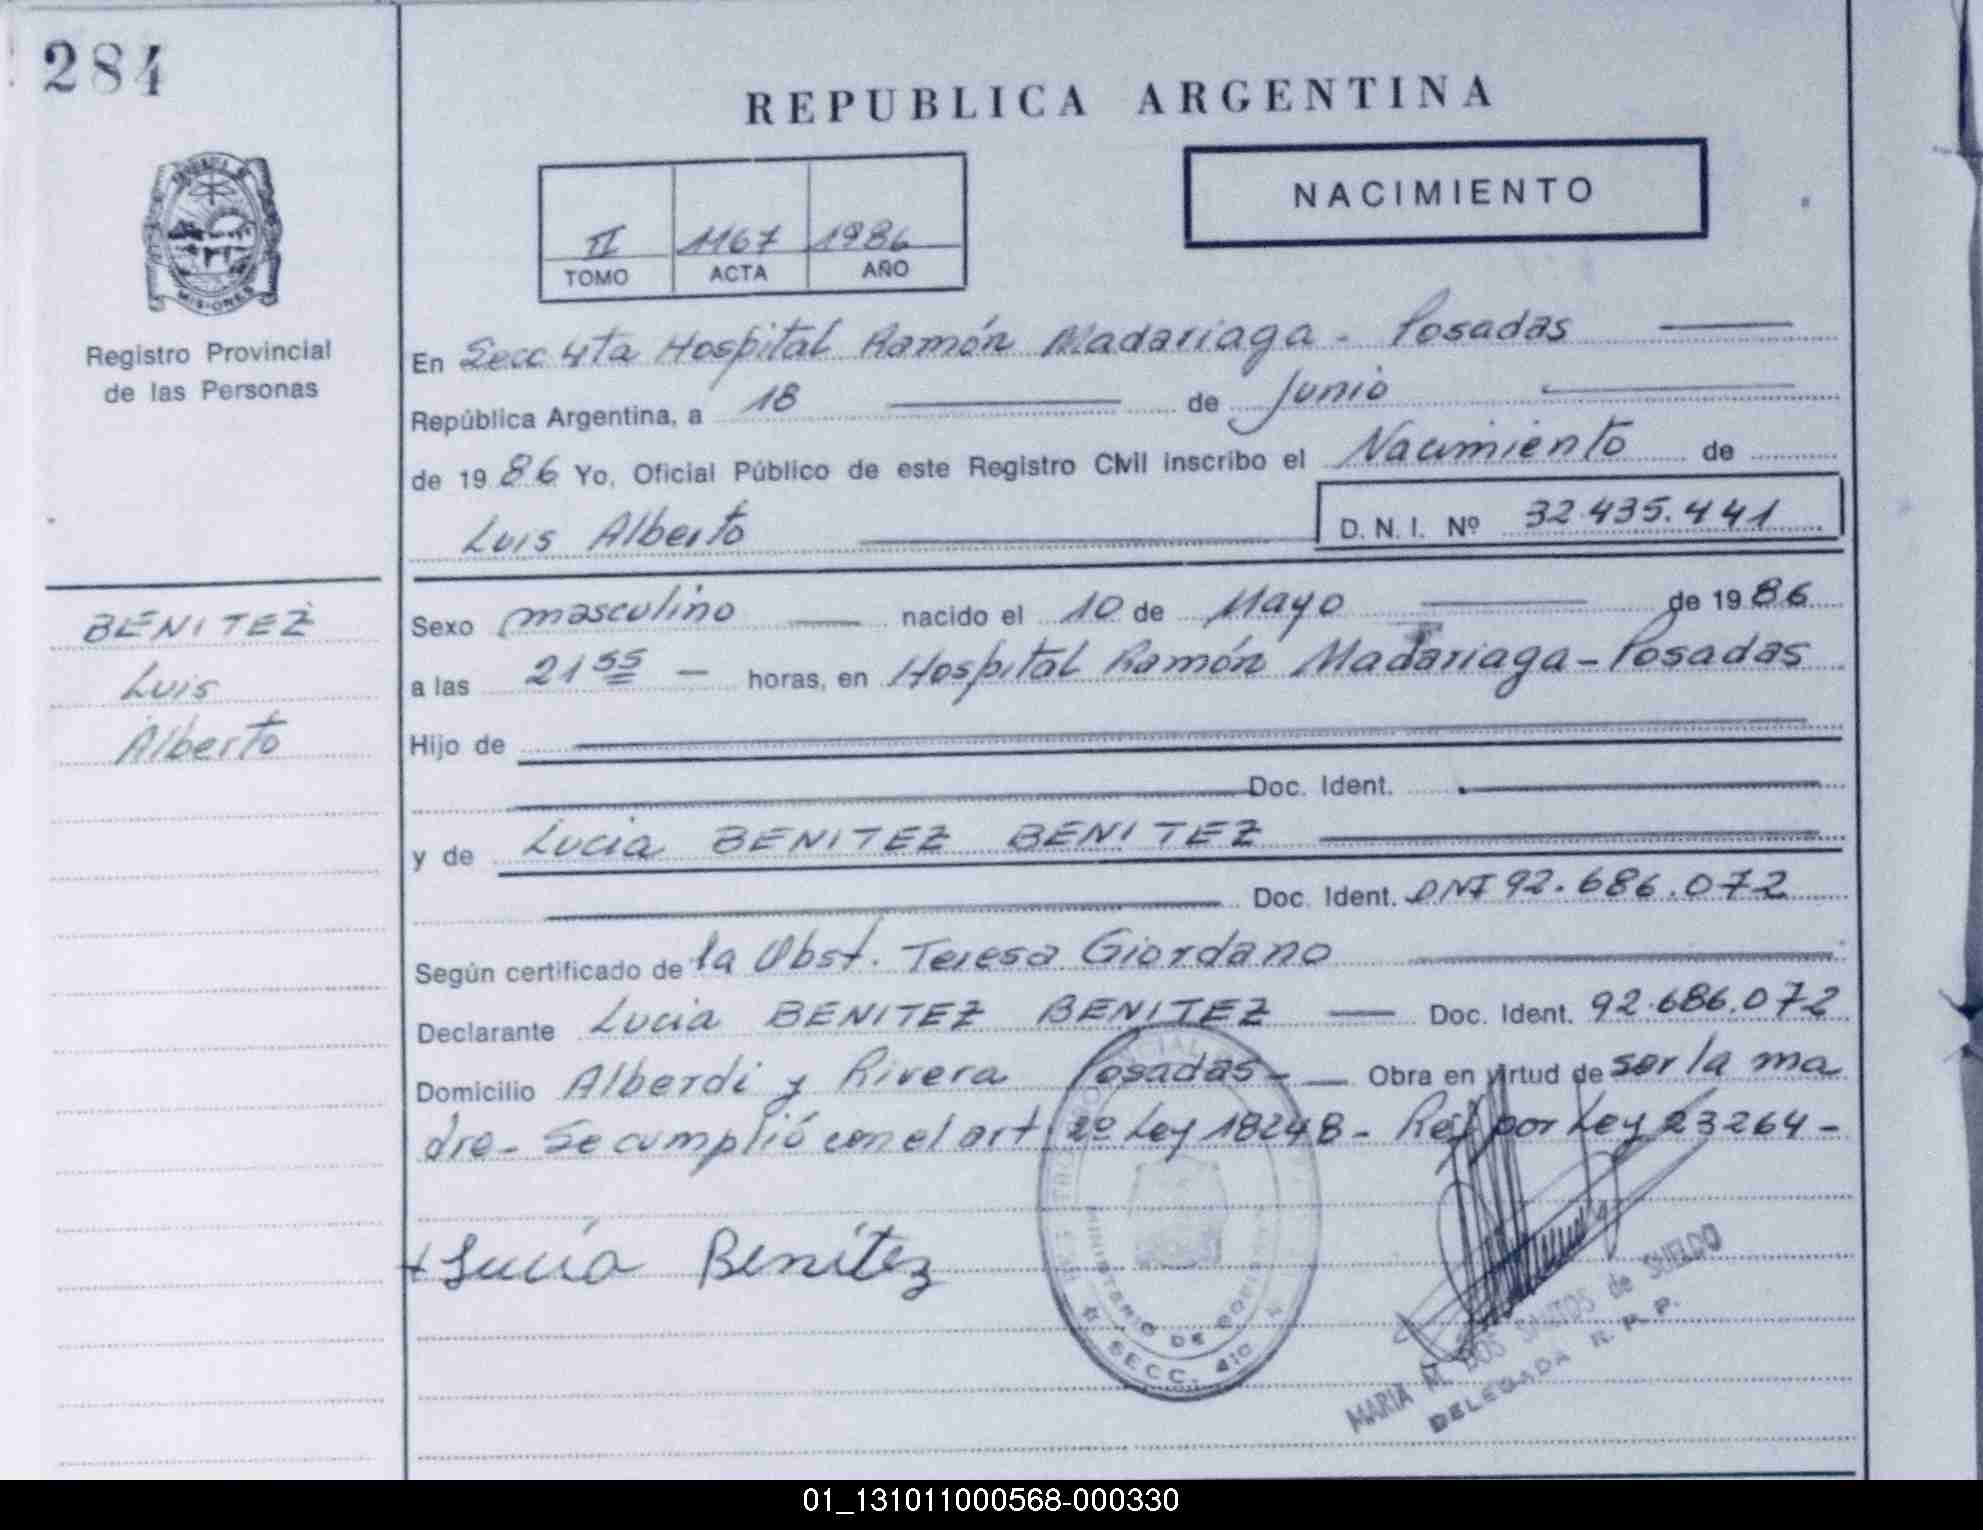 284
REPUBLICA ARGENTINA
NACIMIENTO
II 1167 1986
TOMO ACTA AÑO
MISIONES
Registro Provincial
de las Personas
En Secc 4ta Hospital Ramón Madariaga - Posadas
República Argentina, a 18 de Junio
de 1986 Yo, Oficial Público de este Registro Civil inscribo el Nacimiento de
Luis Alberto D. N. I. Nº 32.435.441
BENITEZ
Luis
Alberto
Sexo masculino nacido el 10 de Mayo de 1986
a las 21 55 horas, en Hospital Ramón Madariaga - Posadas
Hijo de
Doc. Ident.
y de Lucia BENITEZ BENITEZ
Doc. Ident. DNI 92.686.072
Según certificado de la Obst. Teresa Giordano
Declarante Lucia BENITEZ BENITEZ Doc. Ident. 92.686.072
Domicilio Alberdi y Rivera Posadas - Obra en virtud de ser la ma
dre - Se cumplió con el art 2º Ley 18248 - Ref por Ley 23264 -
Lucía Benítez
MINISTERIO DE GOBIERNO
SECC. 4ta
MARIA M. DOS SANTOS de SUELDO
DELEGADA R. P. P.
01_131011000568-000330